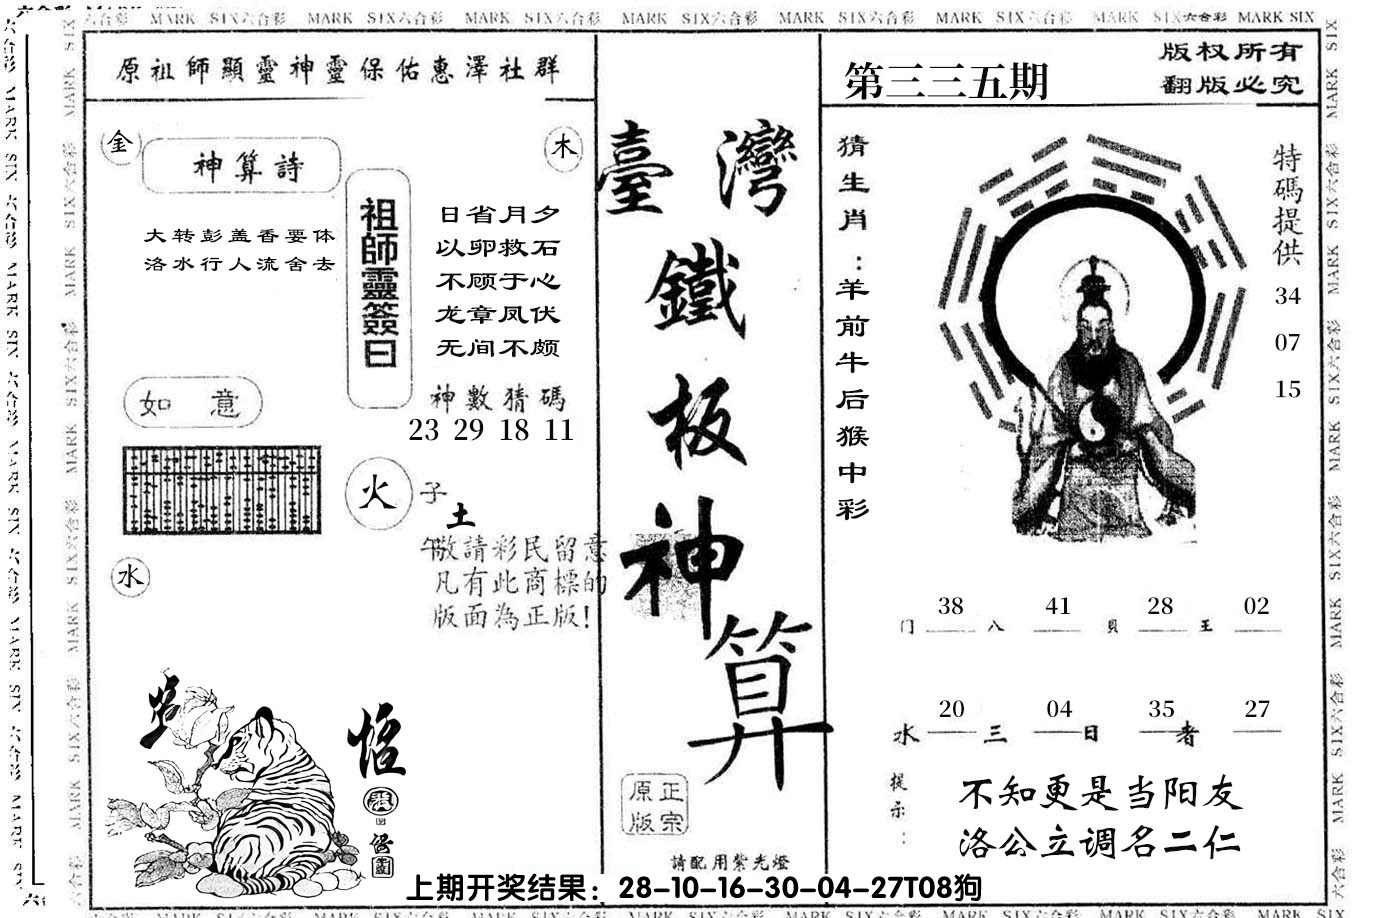 MARK SIX六合彩 MARK SIX六合彩 MARK SIX六合彩 MARK SIX六合彩 MARK SIX六合彩 MARK SIX六合彩 MARK SIX六合彩 MARK SIX
原祖師顯靈神靈保佑惠澤社群
金
神算詩
木
大转彭盖香要体
洛水行人流舍去
祖師靈簽曰
日省月夕
以卵救石
不顾于心
龙章凤伏
无间不颇
神數猜碼
23 29 18 11
如意
火
子
土
午
敬請彩民留意
凡有此商標的
版面為正版!
水
臺灣
鐵
板
神
算
正宗
原版
請配用紫光燈
第三三五期
版权所有
翻版必究
猜生肖:羊前牛后猴中彩
特碼提供
34
07
15
38 41 28 02
门 八 貝 王
20 04 35 27
水 三 日 者
提示:
不知更是当阳友
洛公立调名二仁
上期开奖结果：28-10-16-30-04-27T08狗